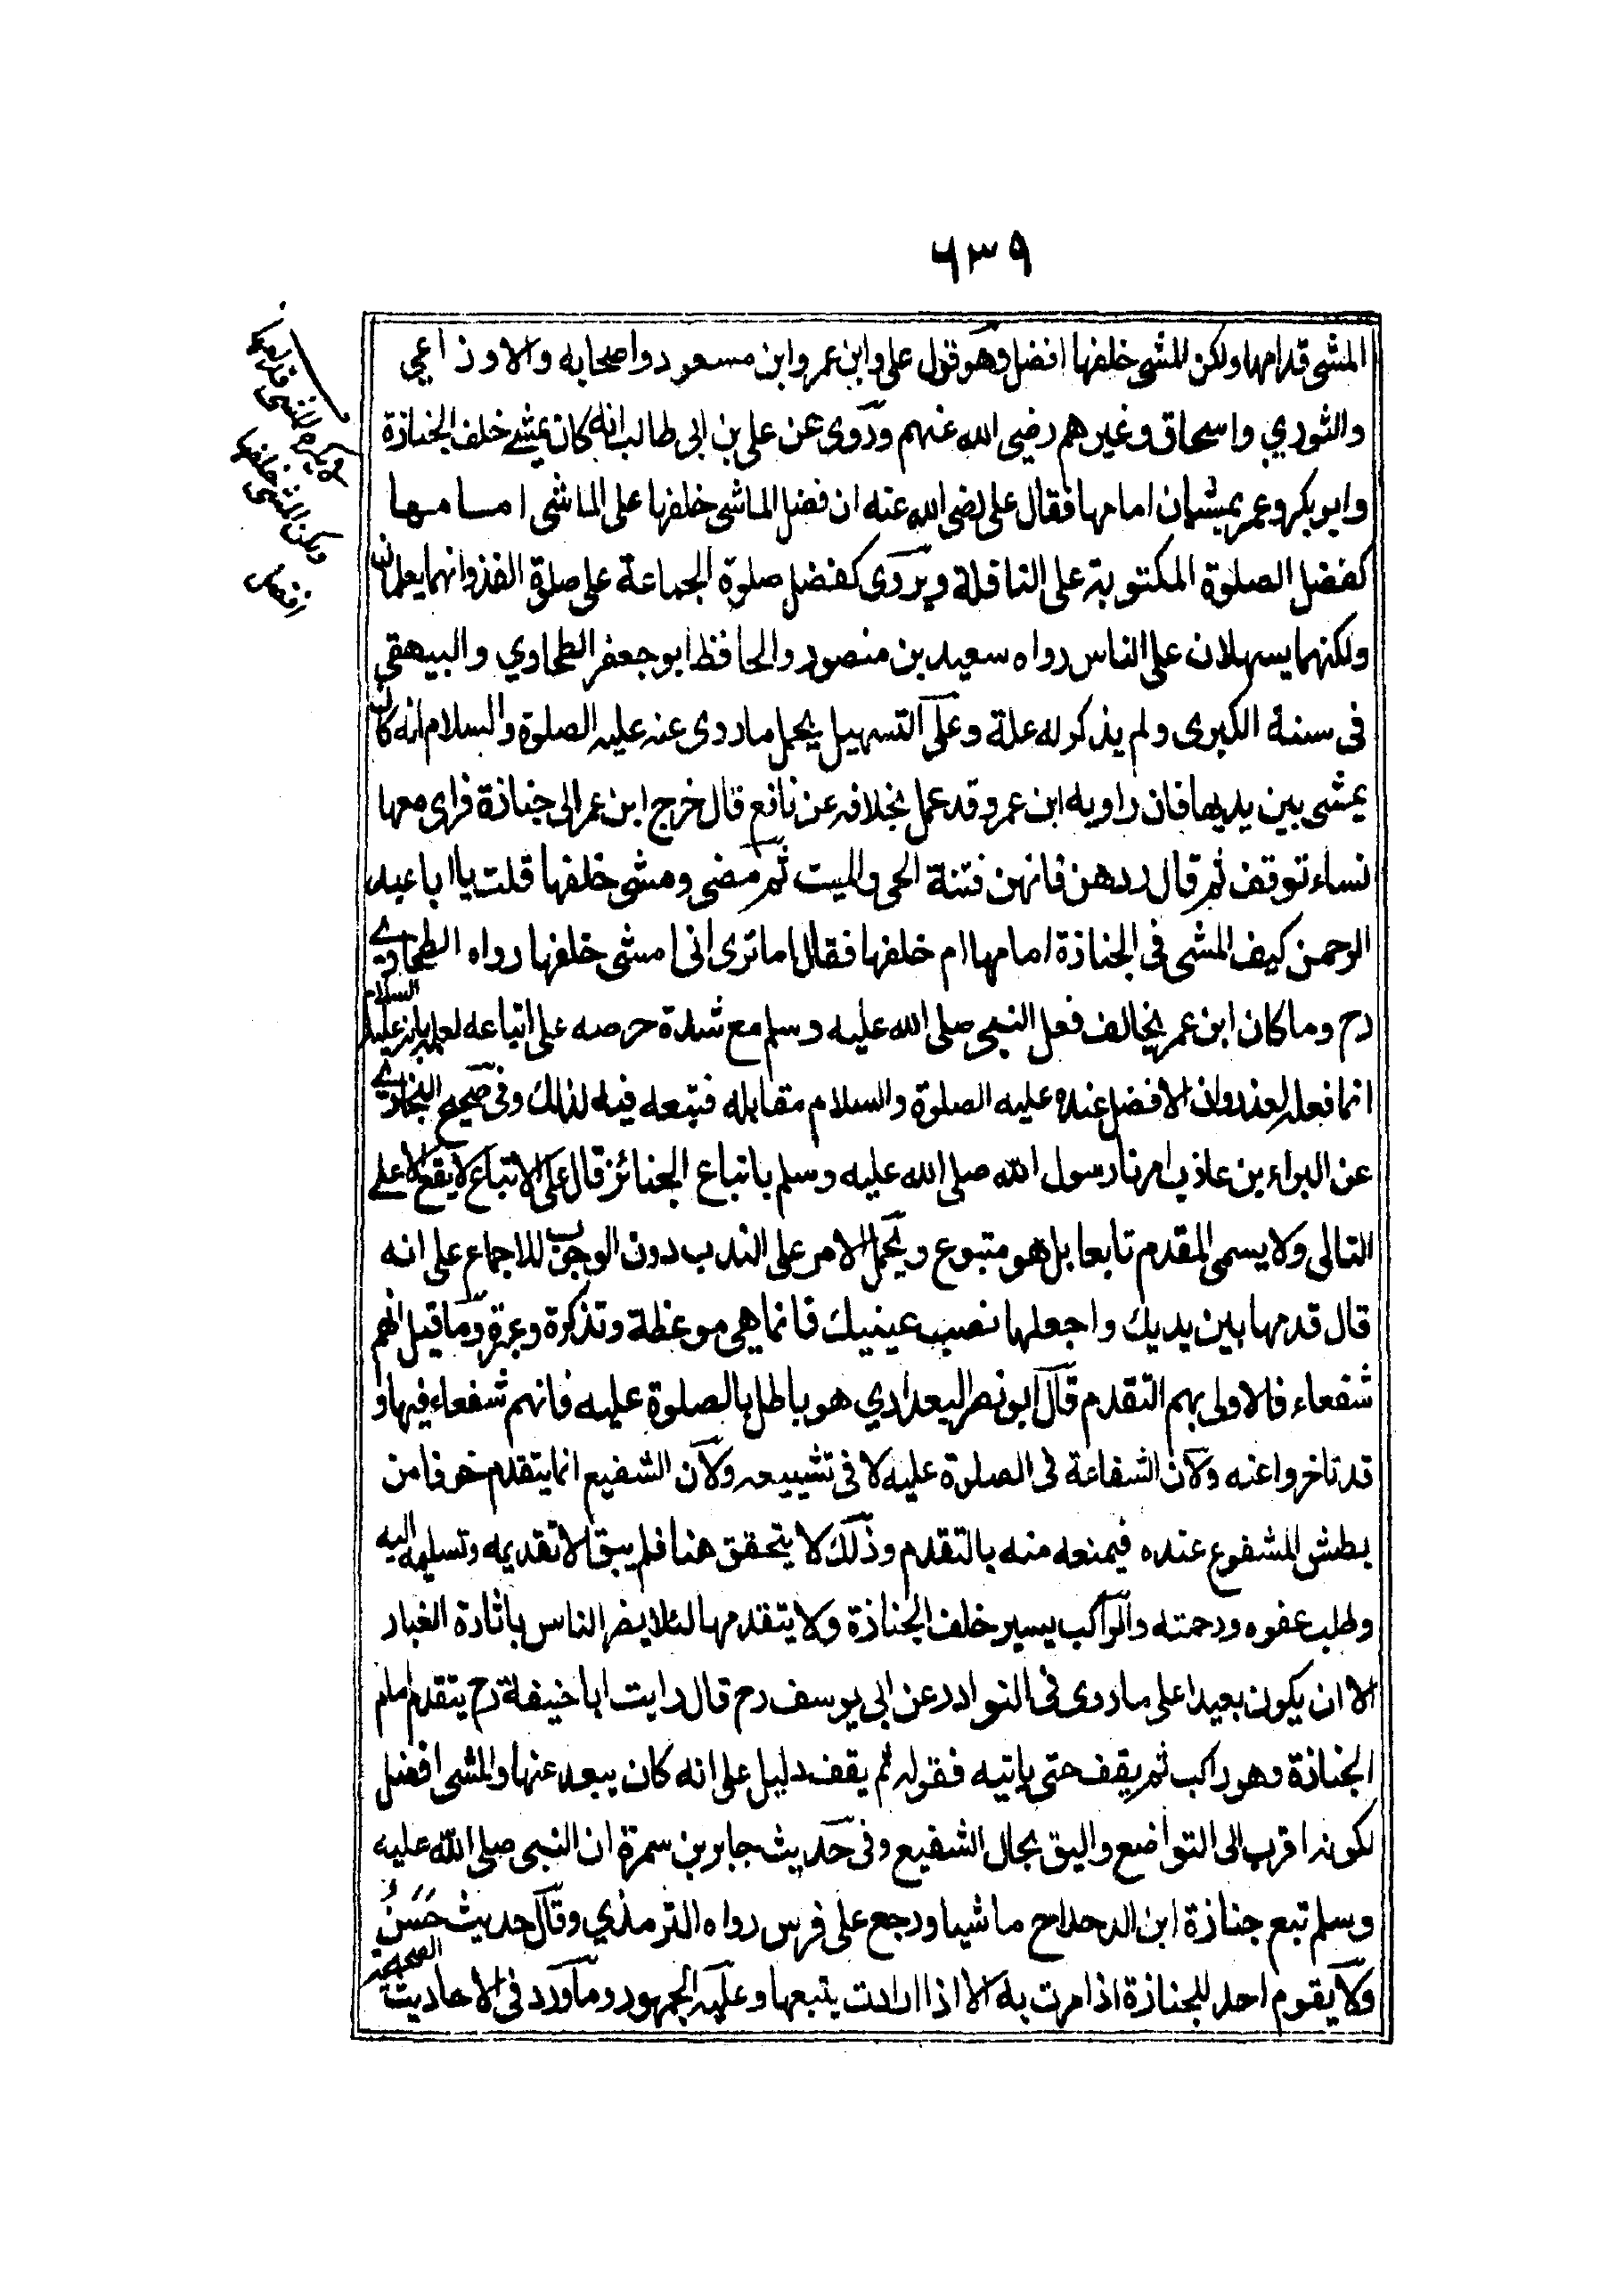 ٦٣٩
المشى قدامها ولكن المشى خلفها افضل وهو قول على وابن عمر وابن مسعود واصحابه والاوزاعي
والثوري واسحاق وغيرهم رضى الله عنهم وروى عن على بن ابى طالب انه كان يمشے خلف الجنازة
وابو بكر وعمر يمشيان امامها فقال على رضى الله عنه ان فضل الماشى خلفها على الماشى امامها
كفضل الصلوة المكتوبة على النافلة ويروى كفضل صلوة الجماعة على صلوة الفذ وانهما يعلمان
ولكنهما يسهلان على الناس رواه سعيد بن منصور والحافظ ابو جعفر الطحاوي والبيهقى
فى سننه الكبرى ولم يذكر له علة وعلى التسهيل يحمل ما روى عنه عليه الصلوة والسلام انه كان
يمشى بين يديها فان راويه ابن عمر وقد عمل بخلافه عن نافع قال خرج ابن عمر الى جنازة فراى معها
نساء توقف ثم قال ردهن فانهن فتنة الحى والميت ثم مضى ومشى خلفها قلت يا ابا عبد
الرحمن كيف المشى فى الجنازة امامها ام خلفها فقال اما ترى انى امشى خلفها رواه الطحاوے
رح وما كان ابن عمر يخالف فعل النبى صلى الله عليه وسلم مع شدة حرصه على اتباعه لعلمه بانه عليه السلام
انما فعله لعذر وان الافضل عنده عليه الصلوة والسلام مقابله فتبعه فيه لذلك وفى صحيح البخارے
عن البراء بن عاذب امرنا رسول الله صلى الله عليه وسلم باتباع الجنائز قال على الاتباع لا يقع الا على
التالى ولا يسمى المقدم تابعا بل هو متبوع ويحمل الامر على الندب دون الوجوب للاجماع على انه
قال قدمها بين يديك واجعلها نصب عينيك فانما هى موعظة وتذكرة وعبرة وما قيل انهم
شفعاء فالاولى بهم التقدم قال ابو نصر البغدادي هو باطل بالصلوة عليه فانهم شفعاء فيها و
قد تاخروا عنه ولان الشفاعة فى الصلوة عليه لا فى تشييعه ولان الشفيع انما يتقدم خوفا من
بطش المشفوع عنده فيمنعه منه بالتقدم وذلك لا يتحقق هنا فلم يبق الا تقديمه وتسليمه اليه
وطلب عفوه ورحمته والراكب يسير خلف الجنازة ولا يتقدمها لئلا يضر الناس باثارة الغبار
الا ان يكون بعيدا على ما روى فى النوادر عن ابى يوسف رح قال رايت ابا حنيفة رح يتقدم امام
الجنازة وهو راكب ثم يقف حتى ياتيه فقوله ثم يقف دليل على انه كان يبعد عنها والمشى افضل
لكونه اقرب الى التواضع واليق بحال الشفيع وفى حديث جابر بن سمرة ان النبى صلى الله عليه
وسلم تبع جنازة ابن الدحداح ماشيا ورجع على فرس رواه الترمذي وقال حديث حَسَنٌ
ولا يقوم احد للجنازة اذا مرت به الا اذا ارادت يتبعها وعليه الجمهور وما ورد فى الاحاديث الصحيحة
المشى قدامها
ولكن المشى خلفها
افضل